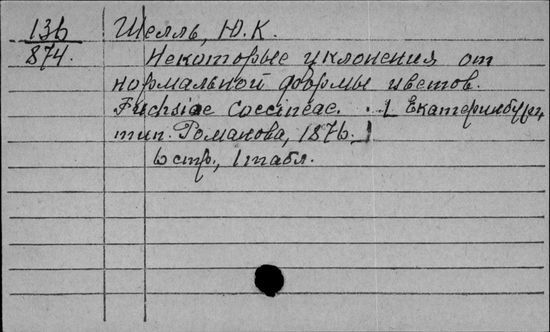 136 Шелль, Ю. К.
874. Некоторые уклонения от
нормальной формы цветов.
Fuchsiae coccineae. .. [Екатеринбург,
тип. Романова, 1876.]
6 стр., 1 табл.